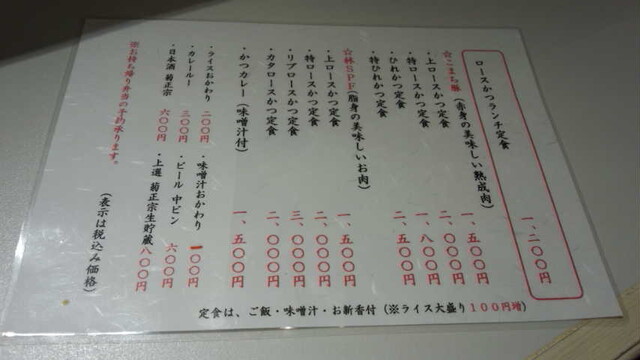 ロースかつランチ定食 一、二〇〇円
☆こまち豚（赤身の美味しい熟成肉）
・上ロースかつ定食 一、五〇〇円
・特ロースかつ定食 二、〇〇〇円
・ひれかつ定食 一、八〇〇円
・特ひれかつ定食 二、五〇〇円
☆林ＳＰＦ（脂身の美味しいお肉）
・上ロースかつ定食 一、五〇〇円
・特ロースかつ定食 二、〇〇〇円
・リブロースかつ定食 三、〇〇〇円
・カタロースかつ定食 二、〇〇〇円
・かつカレー（味噌汁付） 一、五〇〇円
・ライスおかわり 二〇〇円 ・味噌汁おかわり 一〇〇円
・カレールー 三〇〇円 ・ビール 中ビン 六〇〇円
・日本酒 菊正宗 六〇〇円 ・上選 菊正宗生貯蔵 八〇〇円
※お持ち帰り弁当の予約承ります。
（表示は税込み価格）
定食は、ご飯・味噌汁・お新香付（※ライス大盛り１００円増）